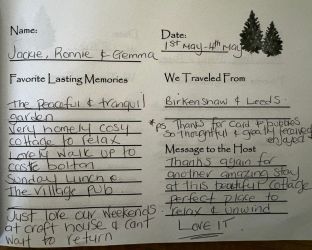 Name:
Jackie, Ronnie & Gemma
Date:
1st May - 4th May
Favorite Lasting Memories
The peaceful & tranquil
garden
Very homely cosy
cottage to relax
Lovely walk up to
coate bolton
Sunday lunch @
The village pub.
Just love our weekends
at craft house & cant
wait to return
We Traveled From
Birkenshaw & Leeds.
*PS Thanks for card & bubbles
So thoughtful & greatly received
enjoyed
Message to the Host
Thanks again for
another amazing stay
at this beautiful cottage
perfect place to
relax & unwind
LOVE IT.